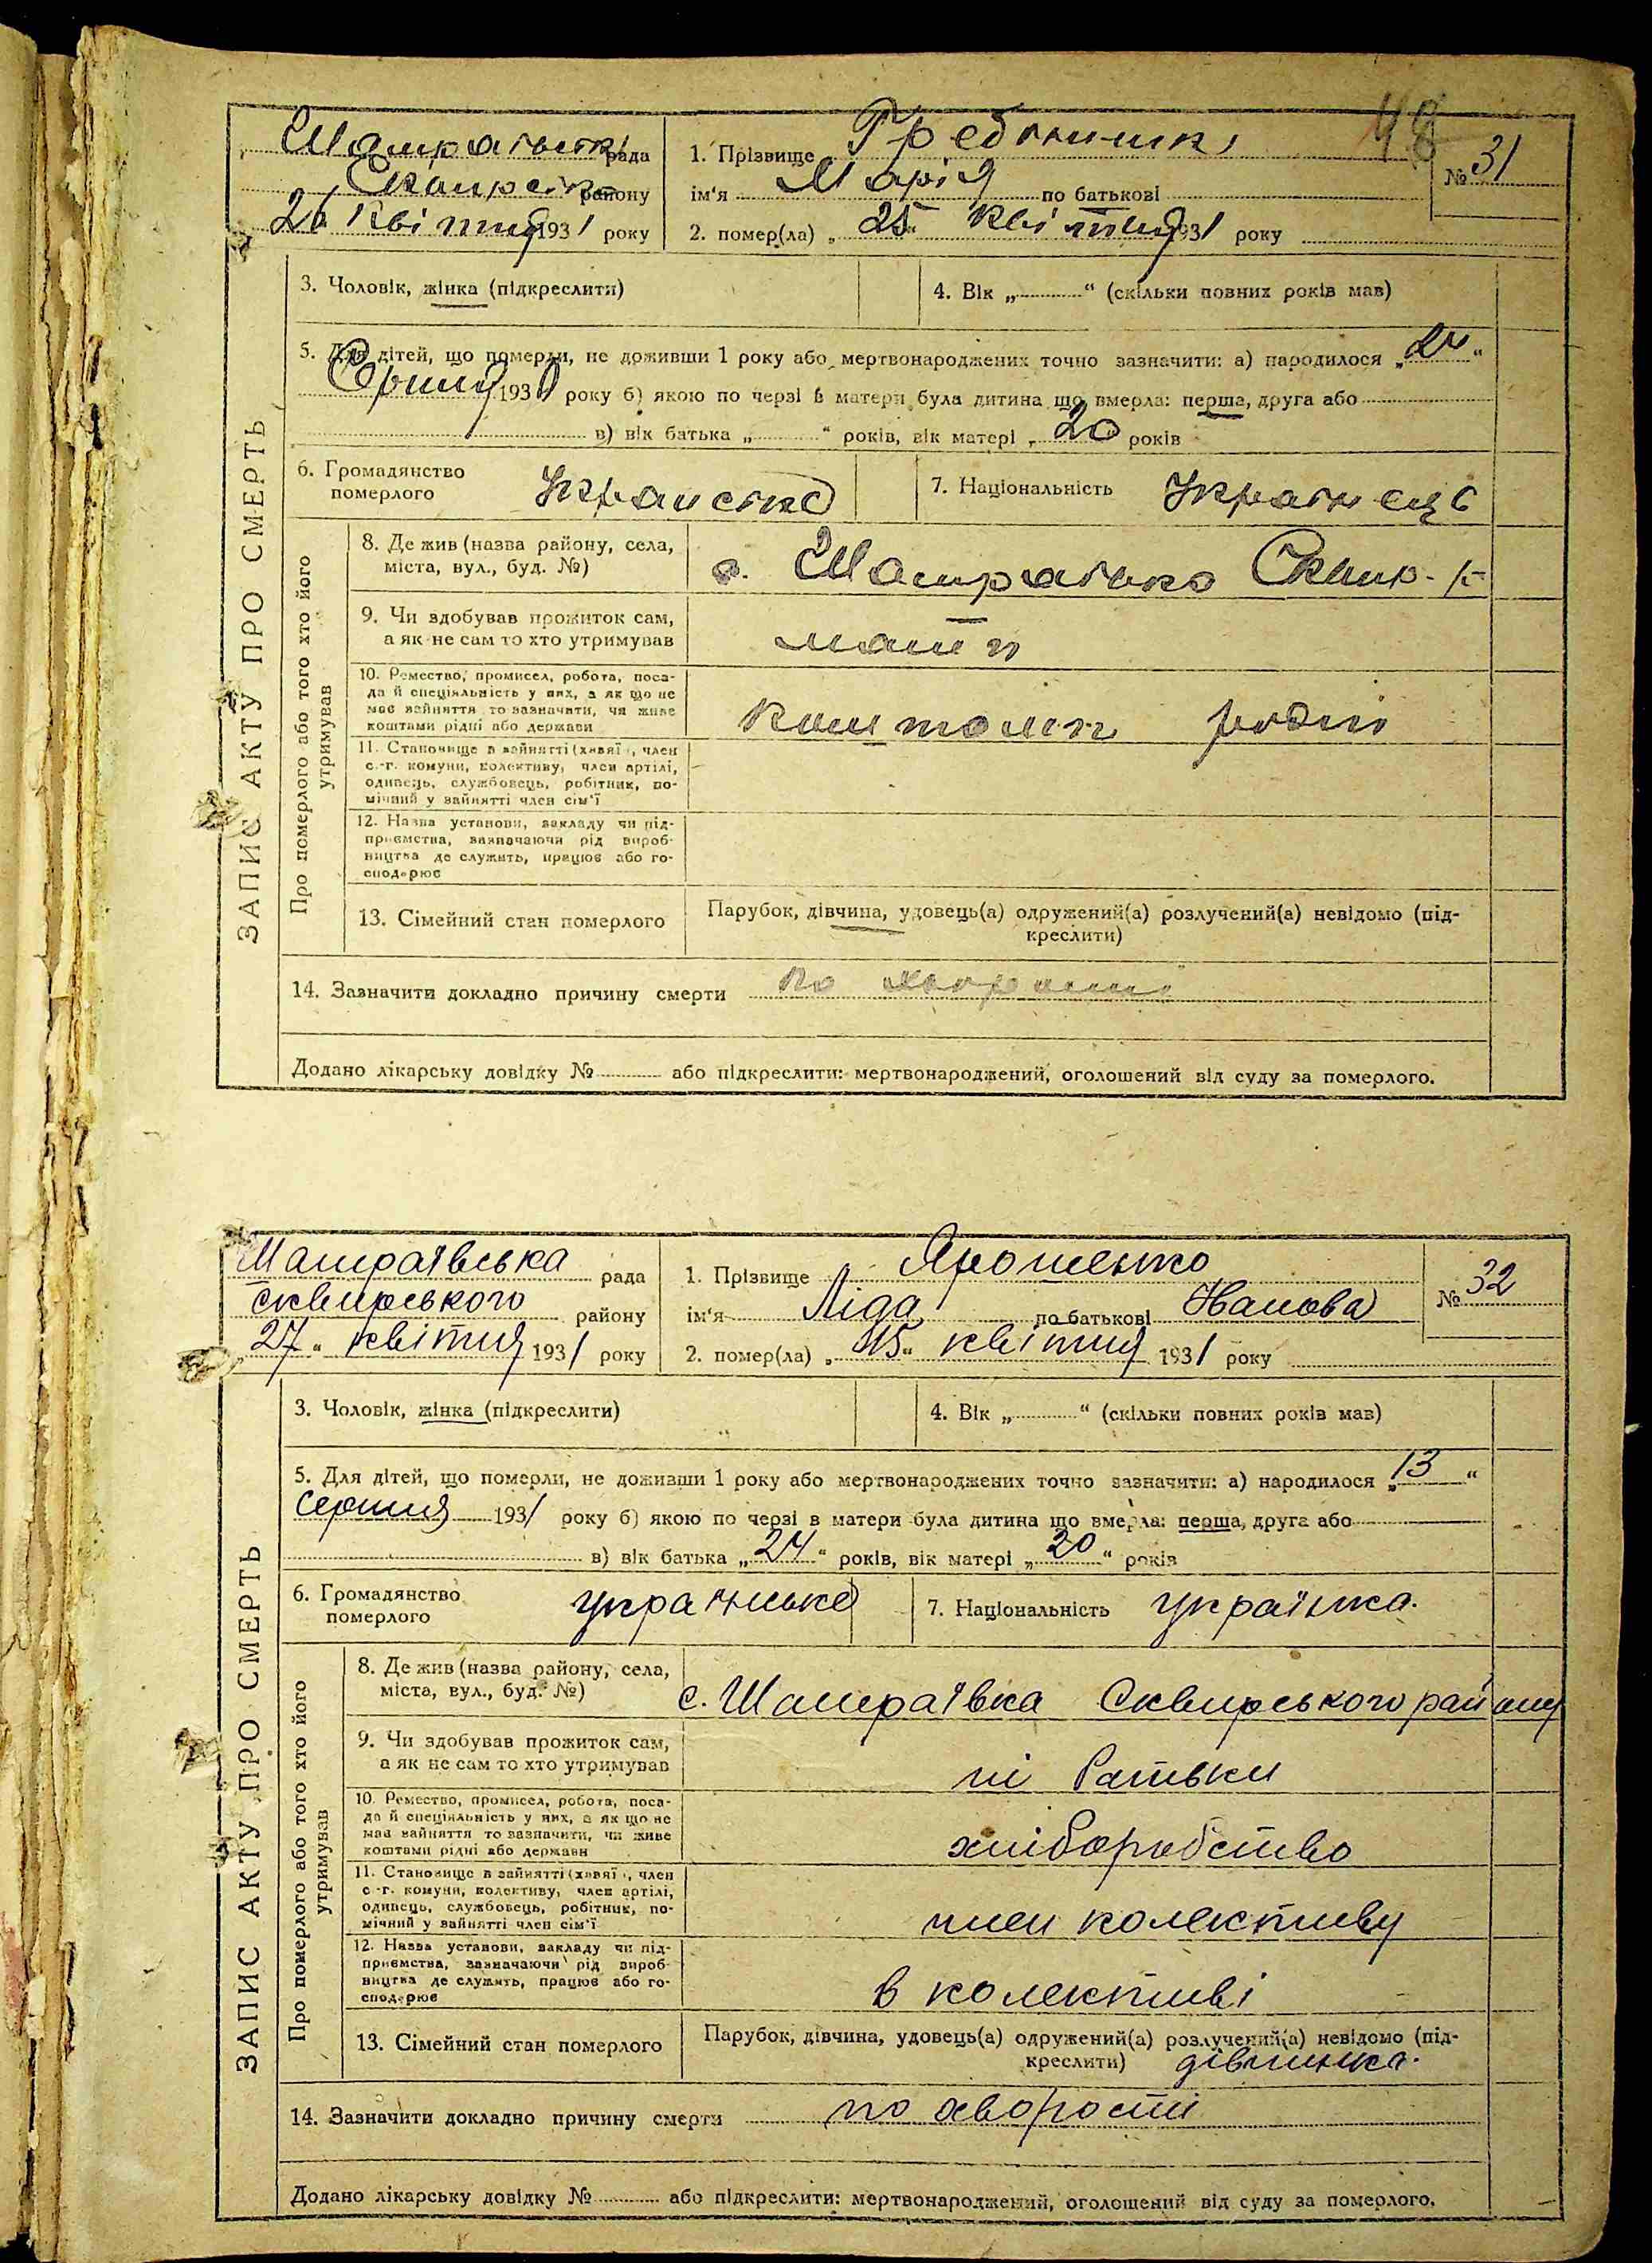 48
рада
району
26 квітня 1931 року
1. Прізвище Гребінник
ім'я Марія по батькові
№ 31
2. помер(ла) „25" квітня 1931 року
3. Чоловік, жінка (підкреслити)
4. Вік „ " (скільки повних років мав)
5. Для дітей, що померли, не доживши 1 року або мертвонароджених точно зазначити: а) народилося „24"
Серпня 1930 року б) якою по черзі в матери була дитина що вмерла: перша, друга або
в) вік батька „ " років, вік матері „20" років
6. Громадянство померлого
7. Національність Українець
8. Де жив (назва району, села,
міста, вул., буд. №)
с.
9. Чи здобував прожиток сам,
а як не сам то хто утримував
мати
10. Ремество, промисел, робота, поса-
да й спеціяльність у них, а як що не
має зайняття то зазначити, чи живе
коштами рідні або держави
коштами рідні
11. Становище в зайнятті (хазяї , член
с.-г. комуни, колективу, член артілі,
одинець, службовець, робітник, по-
мічний у зайнятті член сім'ї
12. Назва установи, закладу чи під-
приємства, зазначаючи рід вироб-
ництва де служить, працює або го-
сподарює
13. Сімейний стан померлого
Парубок, дівчина, удовець(а) одружений(а) розлучений(а) невідомо (під-
креслити)
14. Зазначити докладно причину смерти по хворості
Додано лікарську довідку № або підкреслити: мертвонароджений, оголошений від суду за померлого.
ЗАПИС АКТУ ПРО СМЕРТЬ
Про померлого або того хто його
утримував
Шамраївська рада
Сквирського району
„27" квітня 1931 року
1. Прізвище Ярошенко
ім'я Ліда по батькові Іванова
№ 32
2. помер(ла) „15" квітня 1931 року
3. Чоловік, жінка (підкреслити)
4. Вік „ " (скільки повних років мав)
5. Для дітей, що померли, не доживши 1 року або мертвонароджених точно зазначити: а) народилося „13"
серпня 1931 року б) якою по черзі в матери була дитина що вмерла: перша, друга або
в) вік батька „24" років, вік матері „20" років
6. Громадянство померлого українське
7. Національність українка.
8. Де жив (назва району, села,
міста, вул., буд. №)
с. Шамраївка Сквирського району
9. Чи здобував прожиток сам,
а як не сам то хто утримував
ні батьки
10. Ремество, промисел, робота, поса-
да й спеціяльність у них, а як що не
має зайняття то зазначити, чи живе
коштами рідні або держави
хліборобство
11. Становище в зайнятті (хазяї , член
с.-г. комуни, колективу, член артілі,
одинець, службовець, робітник, по-
мічний у зайнятті член сім'ї
член колективу
12. Назва установи, закладу чи під-
приємства, зазначаючи рід вироб-
ництва де служить, працює або го-
сподарює
в колективі
13. Сімейний стан померлого
Парубок, дівчина, удовець(а) одружений(а) розлучений(а) невідомо (під-
креслити) дівчинка.
14. Зазначити докладно причину смерти по хворості
Додано лікарську довідку № або підкреслити: мертвонароджений, оголошений від суду за померлого.
ЗАПИС АКТУ ПРО СМЕРТЬ
Про померлого або того хто його
утримував